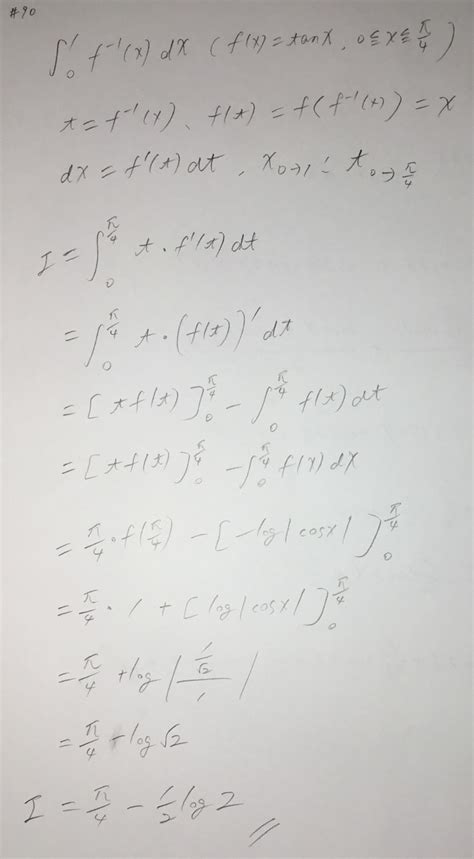 #90
∫₀¹ f⁻¹(x) dx ( f(x) = tan x, 0 ≦ x ≦ π/4 )
t = f⁻¹(x)、 f(t) = f(f⁻¹(x)) = x
dx = f'(t) dt , x 0→1 : t 0→π/4
I = ∫₀^{π/4} t · f'(t) dt
= ∫₀^{π/4} t · (f(t))' dt
= [ t f(t) ]₀^{π/4} - ∫₀^{π/4} f(t) dt
= [ t f(t) ]₀^{π/4} - ∫₀^{π/4} f(x) dx
= π/4 · f(π/4) - [ -log|cos x| ]₀^{π/4}
= π/4 · 1 + [ log|cos x| ]₀^{π/4}
= π/4 + log | (1/√2)/1 |
= π/4 - log √2
I = π/4 - 1/2 log 2 //